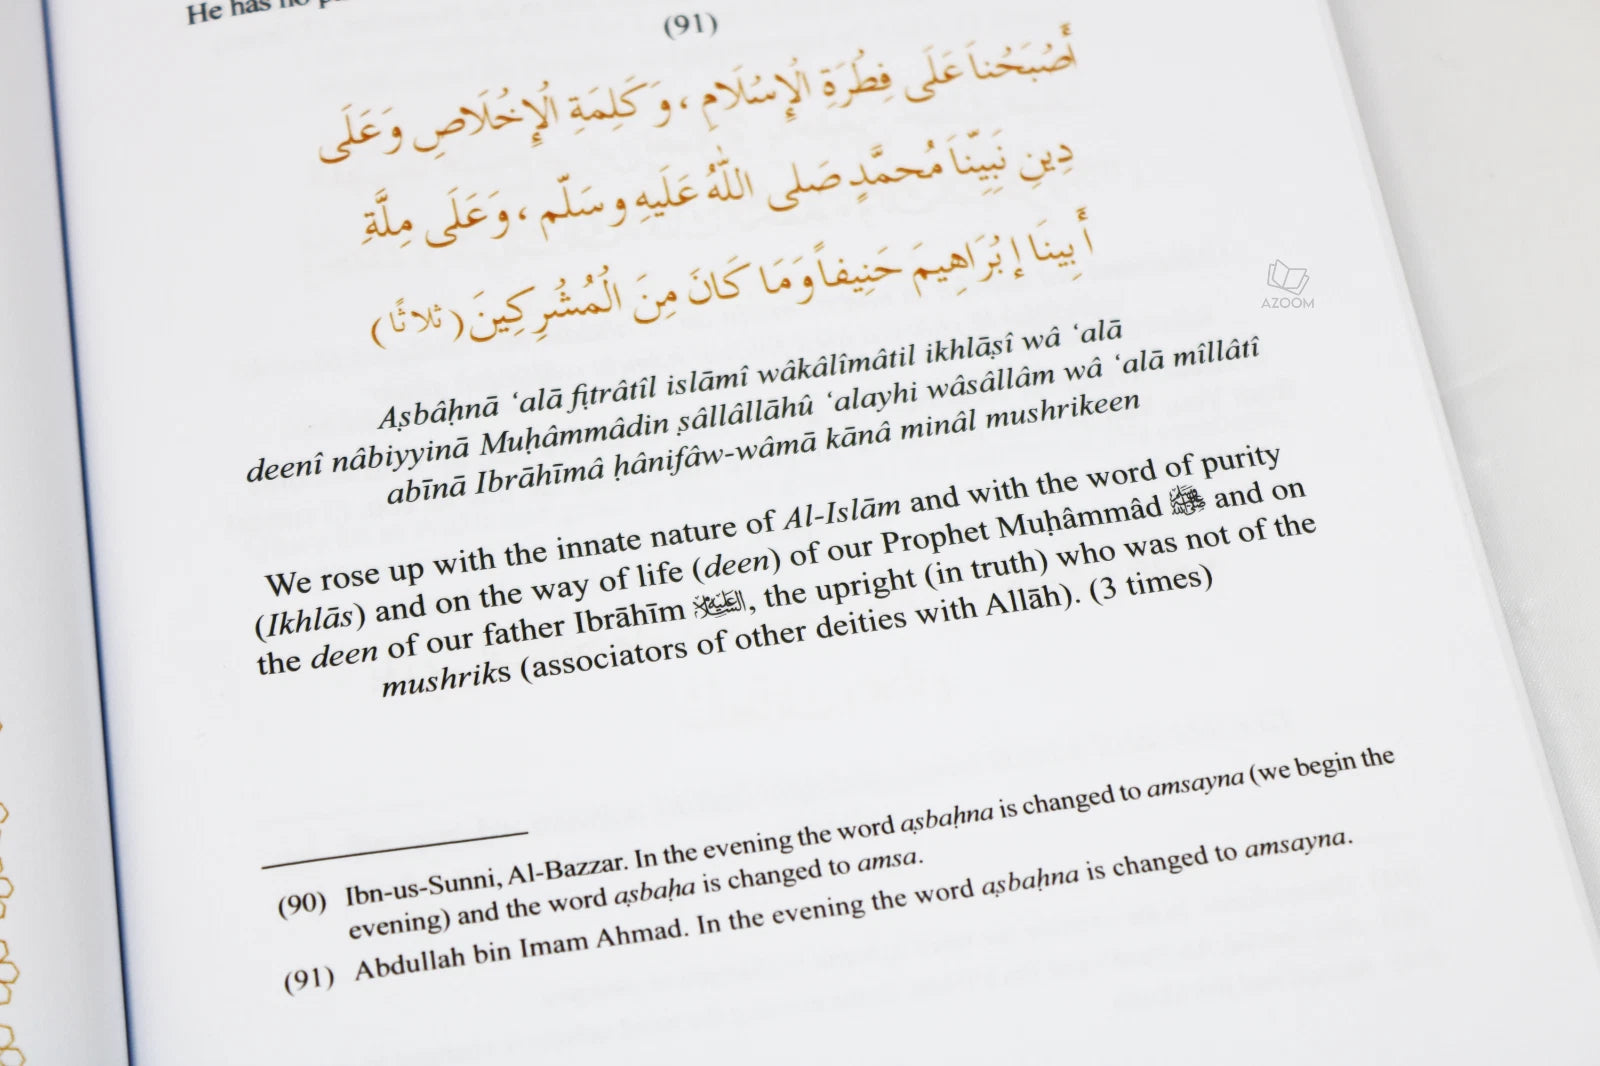 He has no
(91)
أَصْبَحْنَا عَلَى فِطْرَةِ الْإِسْلَامِ ، وَكَلِمَةِ الْإِخْلَاصِ وَعَلَى
دِينِ نَبِيِّنَا مُحمَّدٍ صَلى اللّٰهُ عَلَيهِ وسَلّم ، وَعَلَى مِلَّةِ
أَبِينَا إبْرَاهِيمَ حَنِيفاً وَمَا كَانَ مِنَ الْمُشْرِكِينَ (ثلاثًا)
Aṣbâḥnā ‘alā fiṭrâtîl islāmî wâkâlîmâtil ikhlāṣî wâ ‘alā
deenî nâbiyyinā Muḥâmmâdin ṣâllâllāhû ‘alayhi wâsâllâm wâ ‘alā mîllâtî
abīnā Ibrāhīmâ ḥânifâw-wâmā kānâ minâl mushrikeen
We rose up with the innate nature of Al-Islām and with the word of purity
(Ikhlās) and on the way of life (deen) of our Prophet Muḥâmmâd ﷺ and on
the deen of our father Ibrāhīm عليه السلام, the upright (in truth) who was not of the
mushriks (associators of other deities with Allāh). (3 times)
(90) Ibn-us-Sunni, Al-Bazzar. In the evening the word aṣbaḥna is changed to amsayna (we begin the
evening) and the word aṣbaḥa is changed to amsa.
(91) Abdullah bin Imam Ahmad. In the evening the word aṣbaḥna is changed to amsayna.
AZOOM